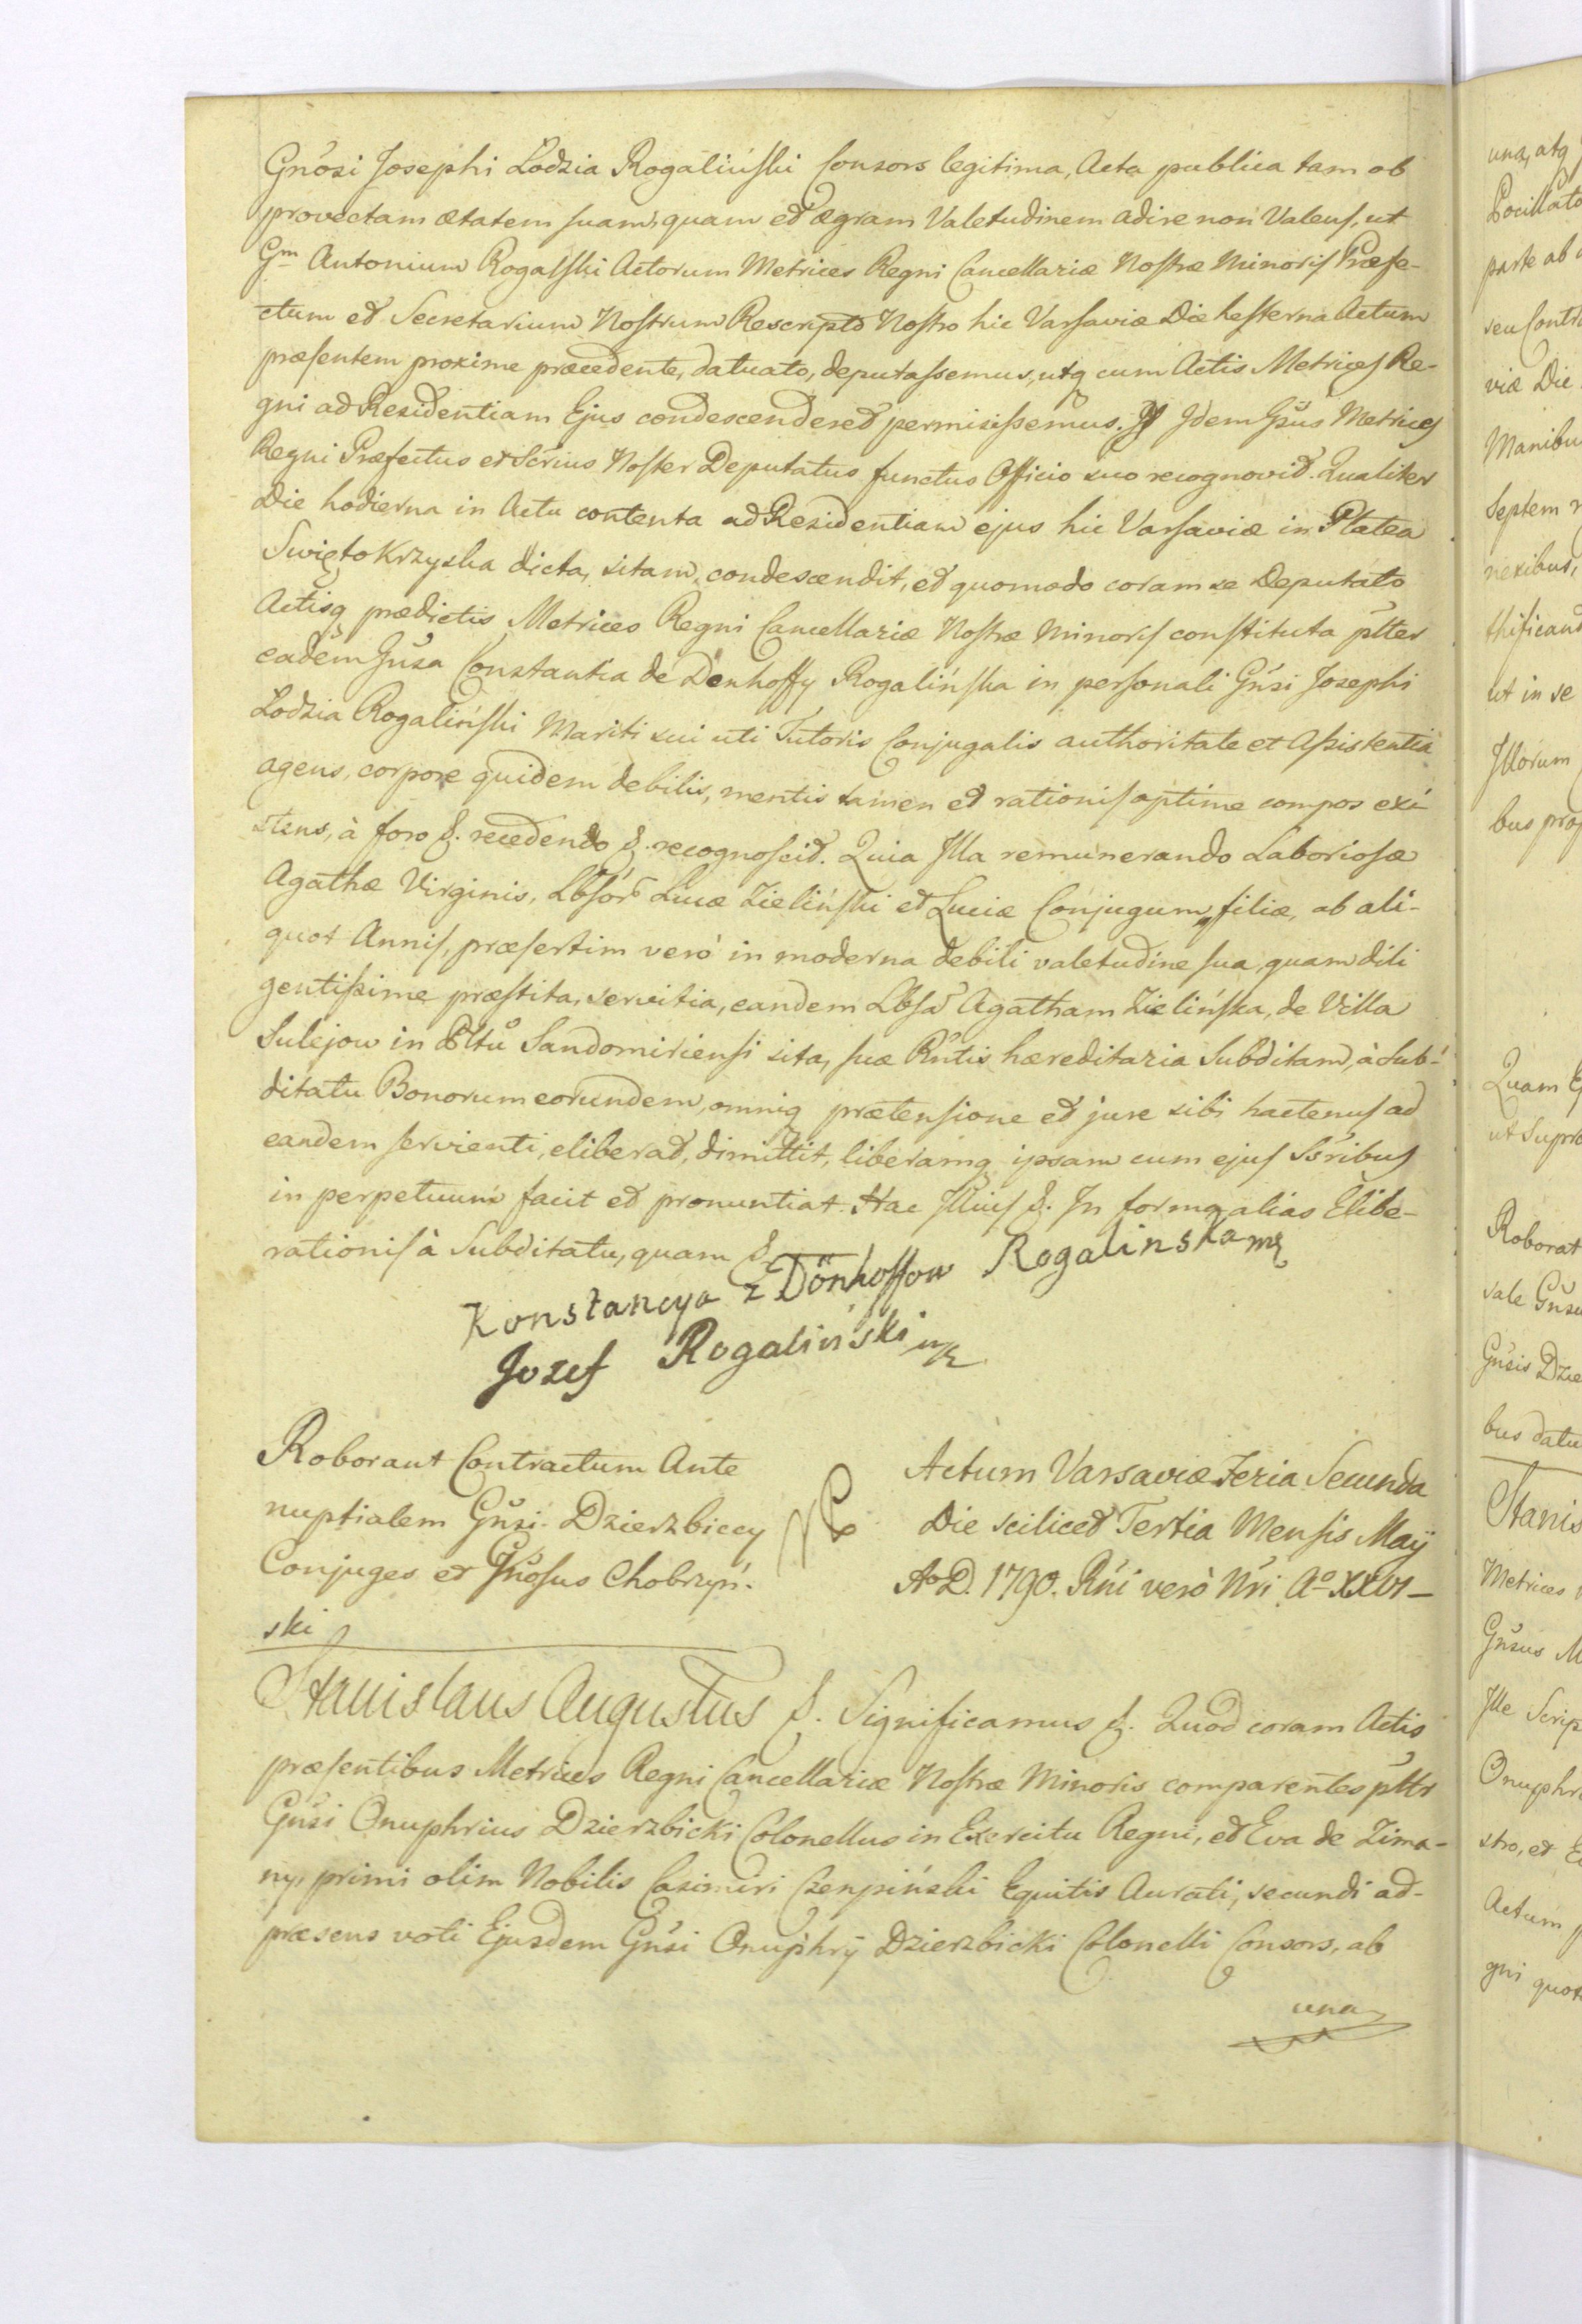 Gnosi Josephi Łodzia Rogaliński Consors legitima, Acta publica tam ob
provectam ætatem suam, quam et ægram Valetudinem adire non Valens, ut
Gm Antonium Rogalski Actorum Metrices Regni Cancellariæ Nostræ Minoris Præfe-
ctum et Secretarium Nostrum Rescripto Nostro hic Varsaviæ Die hesterna Actum
præsentem proxime præcedente, datuato, deputassemus, utq cum Actis Metrices Re-
gni ad Residentiam Ejus condescenderet permisissemus. Idem Gsus Metrices
Regni Præfectus et Scrius Noster Deputatus functus Officio suo recognovit. Qualiter
Die hodierna in Actu contenta ad Residentiam ejus hic Varsaviæ in Platea
Swięto Krzyska dicta, sitam, condescendit, et quomodo coram se Deputato
Actisq prædictis Metrices Regni Cancellariæ Nostræ Minoris constituta pltter
eadem Gnsa Constantia de Denhoffy Rogalińska in personali Gnsi Josephi
Łodzia Rogaliński Mariti sui uti Tutoris Conjugalis authoritate et Assistentia
agens, corpore quidem debilis, mentis tamen et rationis optime compos exi-
stens, à foro &. recedendo &. recognoscit. Quia Illa remunerando Laboriosæ
Agathæ Virginis, Lbsor Lucæ Zieliński et Luciæ Conjugum, filiæ, ab ali-
quot Annis, præsertim verò in moderna debili valetudine sua, quam dili
gentissime præstita, servitia, eandem Lbsa Agatham Zielińska, de Villa
Sulejow in Pltu Sandomiriensi sita, suæ Rntis hæreditaria Subditam, à Sub-
ditatu Bonorum eorundem, omniq prætensione et jure sibi hactenus ad
eandem servienti, eliberat, dimittit, liberamq ipsam cum ejus Ssribus
in perpetuum facit et pronuntiat. Hac Illius &. In forma alias Elibe-
rationis à Subditatu, quam &.
Konstancya z Dönhoffow Rogalinska mp
Jozef Rogaliński mp
Roborant Contractum Ante
nuptialem Gnsi Dzierzbiccy
Conjuges et Gnosus Chobrzyń-
ski
Actum Varsaviæ Feria Secunda
Die scilicet Tertia Mensis Maij
Ao D. 1790. Rni verò Nri Ao XXVI
Stanislaus Augustus &. Significamus &. Quod coram Actis
præsentibus Metrices Regni Cancellariæ Nostræ Minoris comparentes plttr
Gnsi Onuphrius Dzierzbicki Colonellus in Exercitu Regni, et Eva de Zima-
ny, primi olim Nobilis Casimiri Czenpiński Equitis Aurati, secundi ad-
præsens voti Ejusdem Gnsi Onuphrij Dzierzbicki Colonelli Consors, ab
una
una, atq
parte ab
viæ Die
Manibu
Septem
nexibus,
ut in se
Illorum
bus prop
Quam
ut Supra
Roborat
vale Gnsu
Gnsis Dzie
bus datu
Stanis
Metrices
Gnsus M
Ille Scrip
Onuphri
stro, et
Actum
gni quot